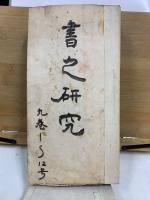 書之研究
九巻十〜12号